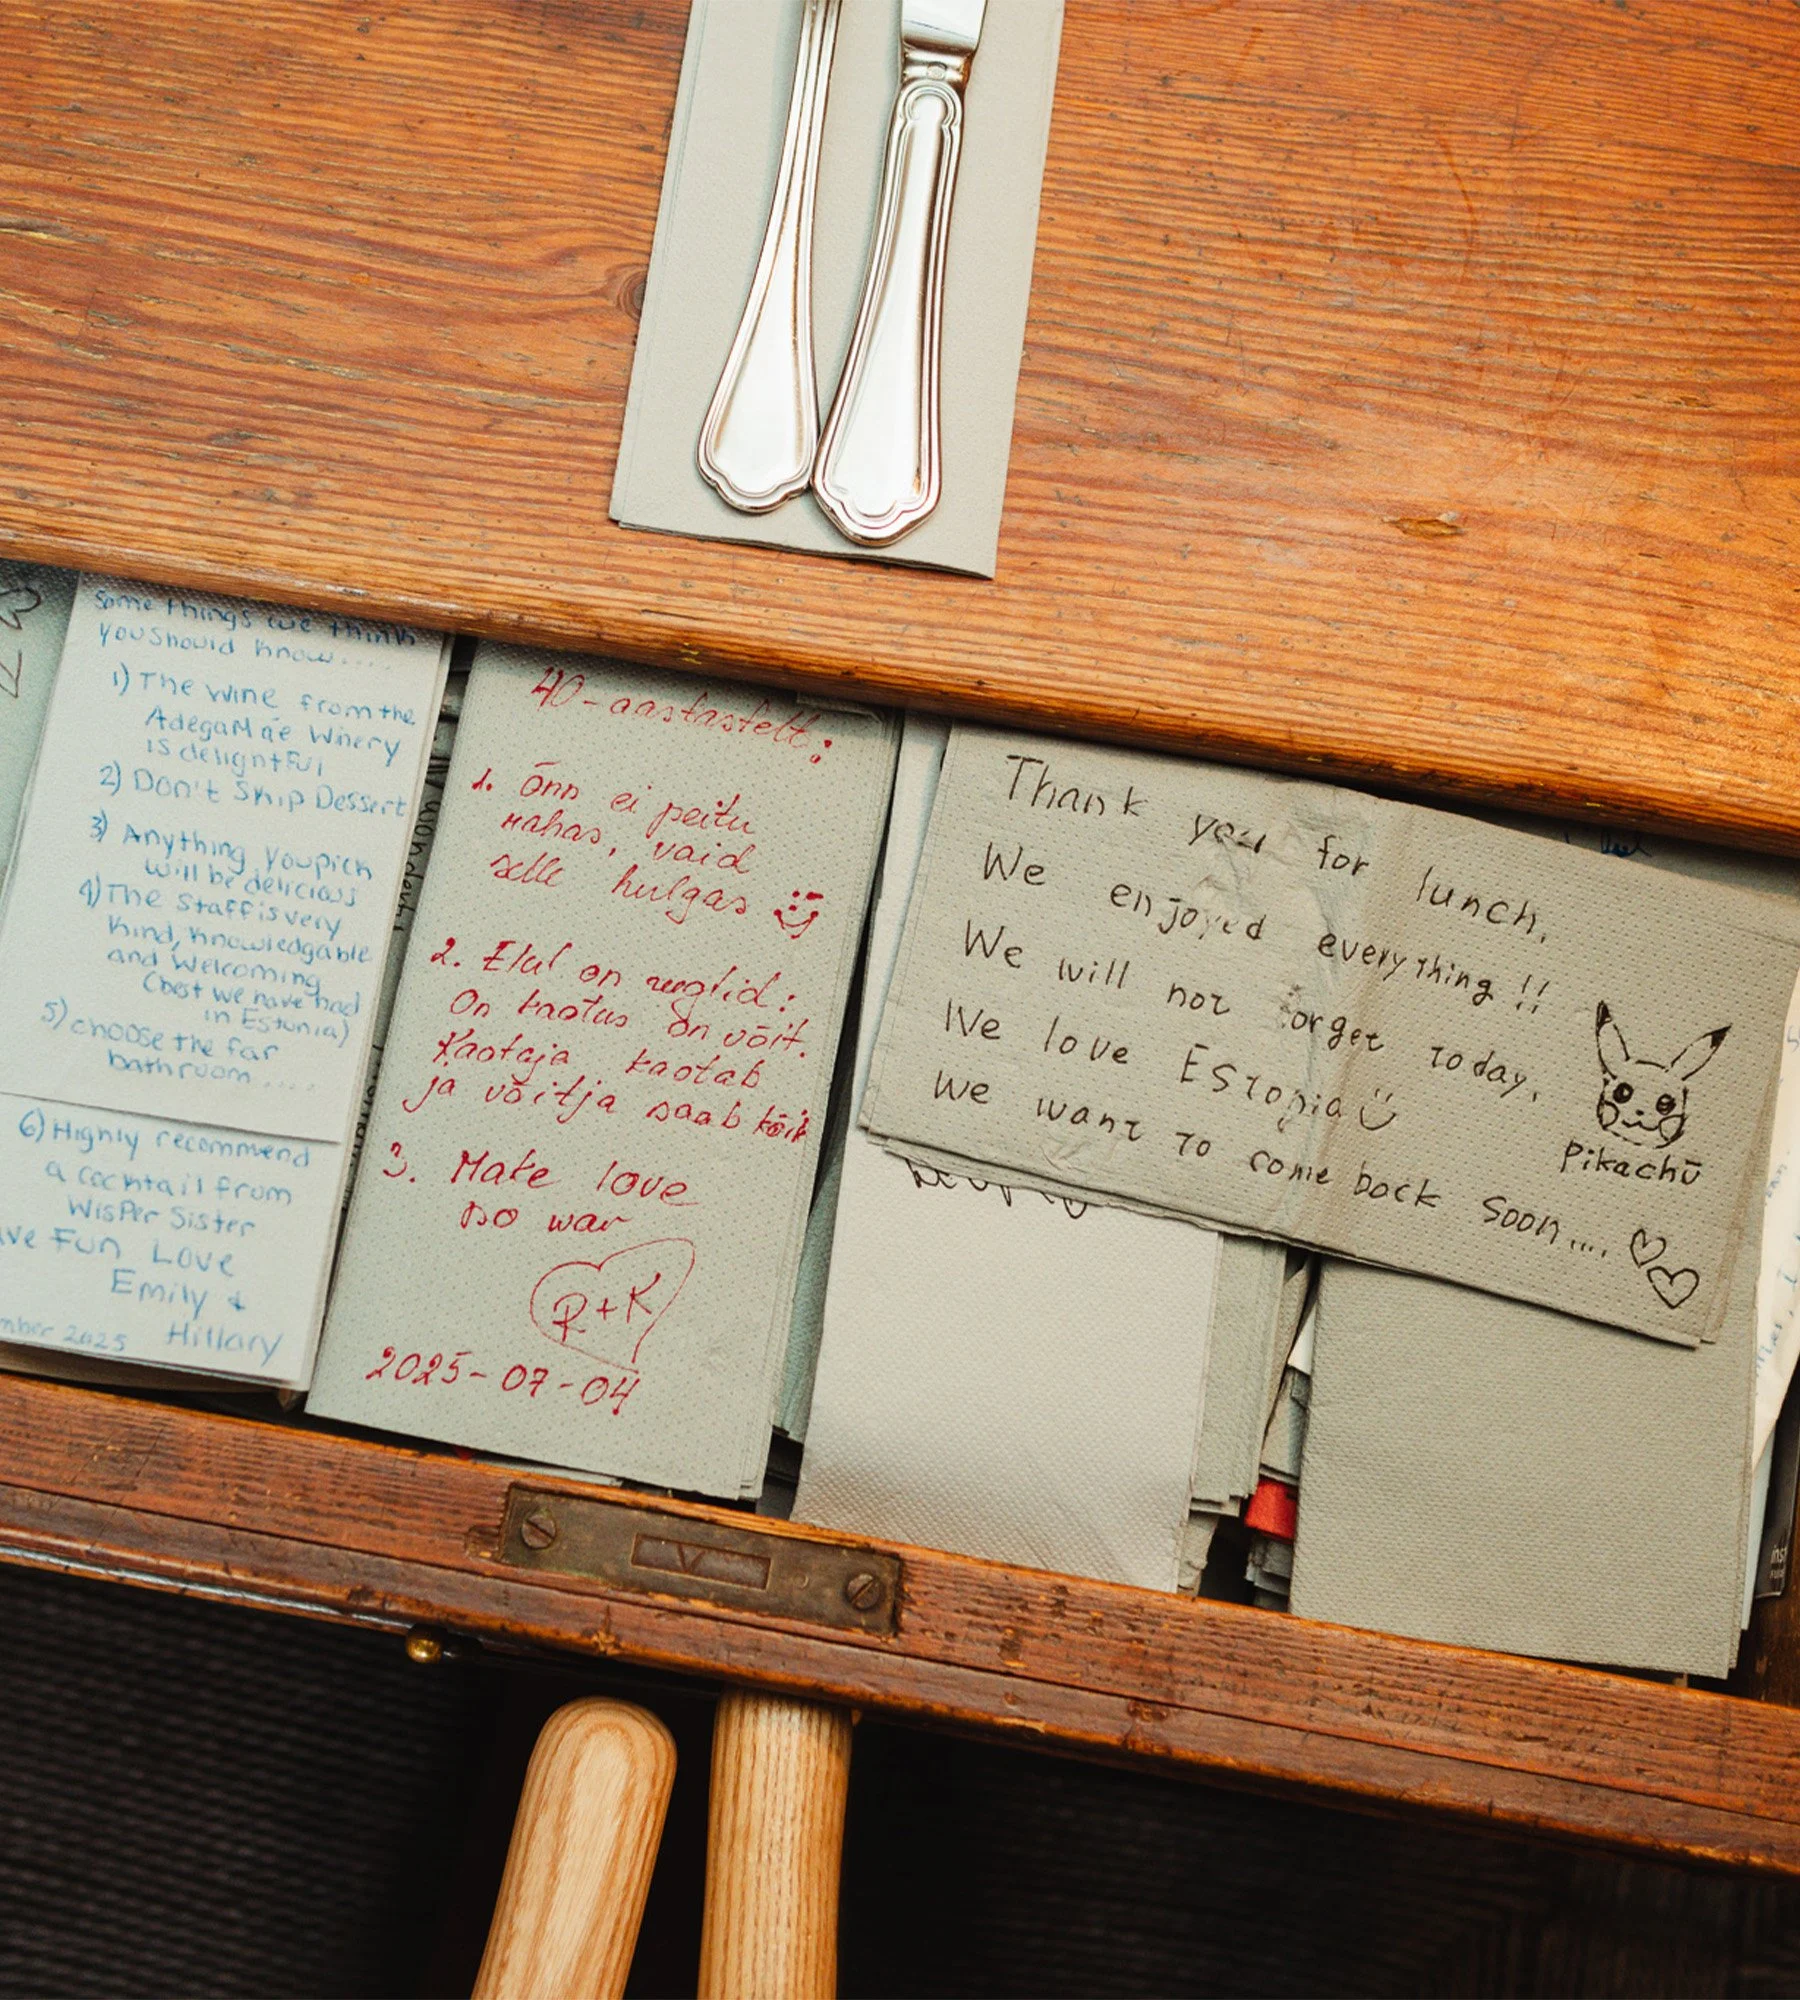 Some things we think
you should know....
1) The wine from the
AdegaMãe Winery
is delightful
2) Don't Skip Dessert
3) Anything you pick
will be delicious
4) The Staff is very
kind, knowledgable
and welcoming
(best we have had
in Estonia)
5) choose the far
bathroom....
6) Highly recommend
a cocktail from
Wisper Sister
ve Fun Love
Emily +
Hillary
mber 2025
40-aastastelt:
1. Õnn ei peitu
rahas, vaid
selle hulgas
2. Elul on reeglid:
On kaotus on võit.
Kaotaja kaotab
ja võitja saab kõik
3. Make love
no war
R+K
2025-07-04
Thank you for lunch.
We enjoyed everything!!
We will not forget today.
We love Estonia
We want to come back soon....
Pikachū